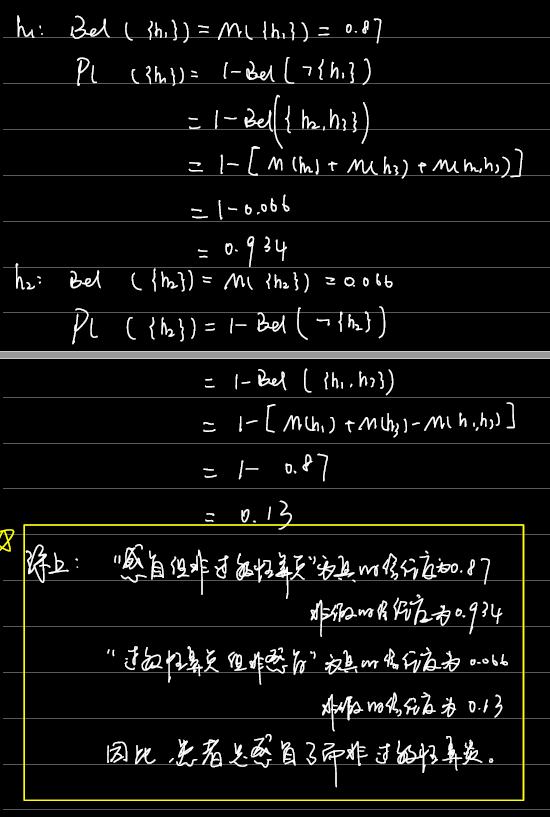 h₁: Bel ({h₁}) = M({h₁}) = 0.87
Pl ({h₁}) = 1-Bel(¬{h₁})
= 1-Bel({h₂,h₃})
= 1-[M(h₂)+M(h₃)+M(h₂,h₃)]
= 1-0.066
= 0.934
h₂: Bel ({h₂}) = M({h₂}) = 0.066
Pl ({h₂}) = 1-Bel(¬{h₂})
= 1-Bel ({h₁,h₃})
= 1-[M(h₁)+M(h₃)-M(h₁,h₃)]
= 1- 0.87
= 0.13
综上: "感冒但非过敏性鼻炎"为真的信任度为0.87
非假的信任度为0.934
"过敏性鼻炎但非感冒"为真的信任度为0.066
非假的信任度为0.13
因比,患者是感冒了而非过敏性鼻炎。